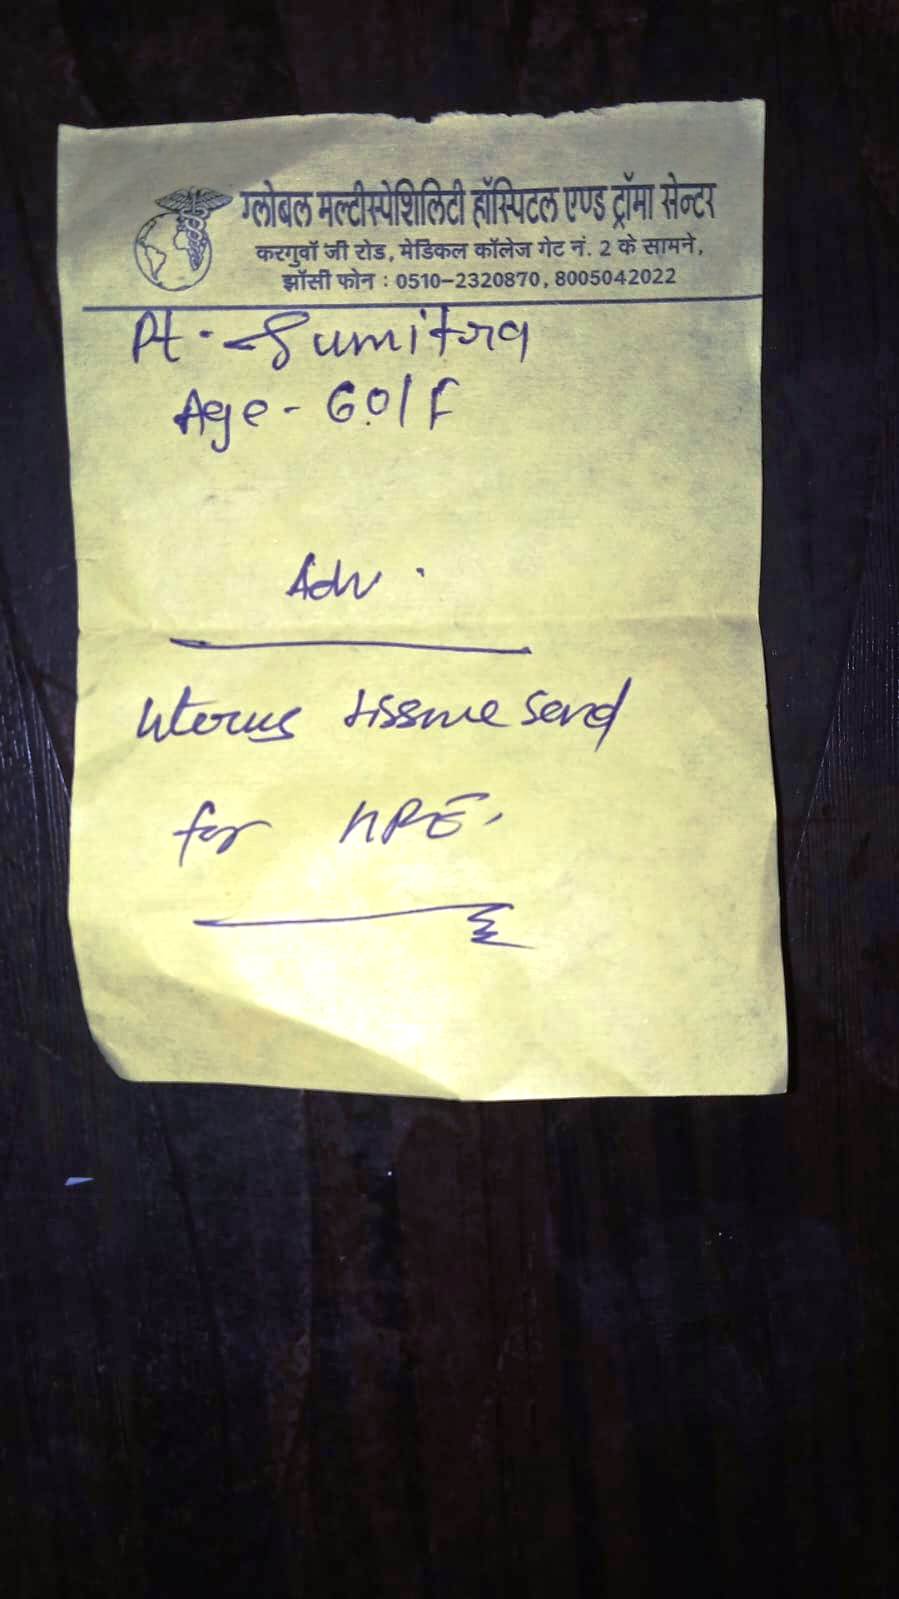 ग्लोबल मल्टीस्पेशिलिटी हॉस्पिटल एण्ड ट्रॉमा सेन्टर
करगुवॉ जी रोड, मेडिकल कॉलेज गेट नं. 2 के सामने,
झॉसी फोन : 0510-2320870, 8005042022
Pt. Sumitra
Age - 60/F
Adv.
Uterus tissue send
for HPE.